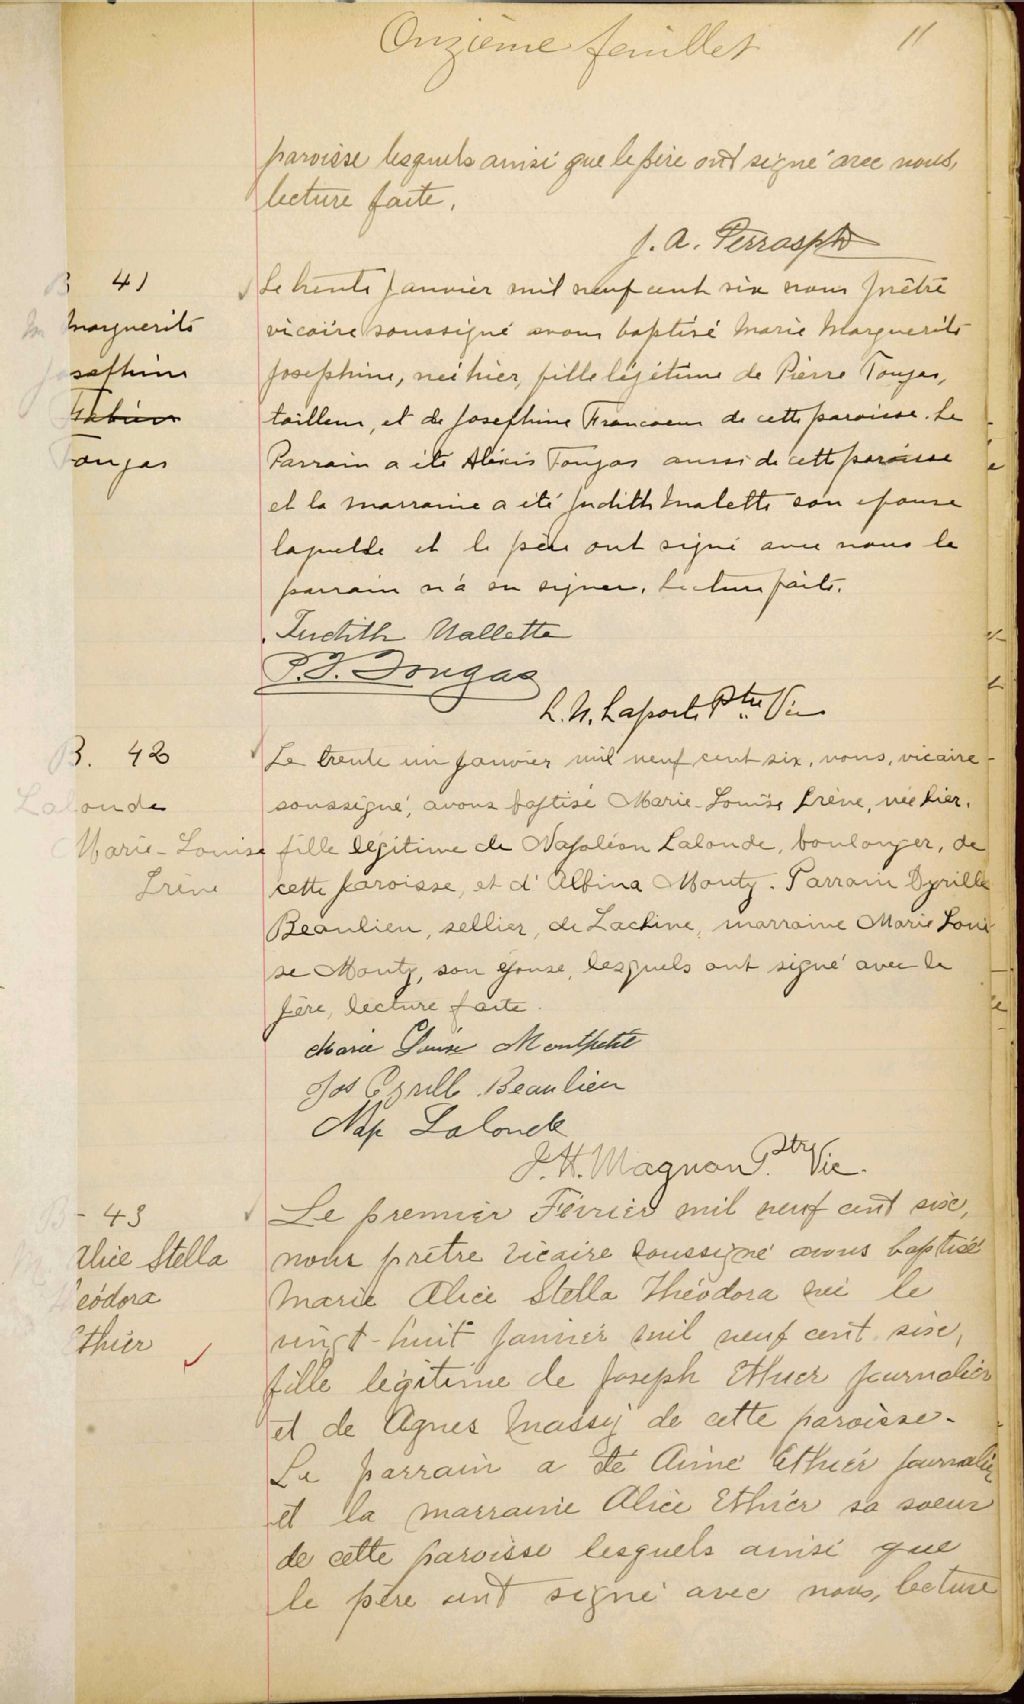 Onzième feuillet 11
paroisse lesquels ainsi que le père ont signé avec nous,
lecture faite.
J. A.
B 41
M Marguerite
Josephine
Tougas
Le trente Janvier mil neuf cent six nous prêtre
vicaire soussigné avons baptisé Marie Marguerite
Josephine, née hier, fille légitime de Pierre Tougas,
tailleur, et de Josephine Francoeur de cette paroisse. Le
Parrain a été Alexis Tougas aussi de cette paroisse
et la marraine a été Judith Malette son epouse
laquelle et le père ont signé avec nous le
parrain n'a su signer. Lecture faite.
Judith Mallette
P. J. Tougas
L. N. Laporte Ptre Vic
B. 42
Lalonde
Marie-Louise
Irène
Le trente un janvier mil neuf cent six, nous, vicaire
soussigné, avons baptisé Marie-Louise Irène, née hier,
fille légitime de Napoléon Lalonde, boulanger, de
cette paroisse, et d'Albina Monty. Parrain Cyrille
Beaulieu, sellier, de Lachine, marraine Marie Loui
se Monty, son épouse, lesquels ont signé avec le
père, lecture faite.
Marie Louise Montpetit
Jos Cyrille Beaulieu
Nap Lalonde
J. H. Magnan Ptre Vic.
B - 43
M Alice Stella
Théodora
Ethier
Le premier Février mil neuf cent six,
nous prêtre vicaire soussigné avons baptisé
Marie Alice Stella Théodora née le
vingt-huit janvier mil neuf cent six,
fille légitime de Joseph Ethier journalier
et de Agnes Massy de cette paroisse.
Le parrain a été Aimé Ethier journalier
et la marraine Alice Ethier sa soeur
de cette paroisse lesquels ainsi que
le père ont signé avec nous, lecture